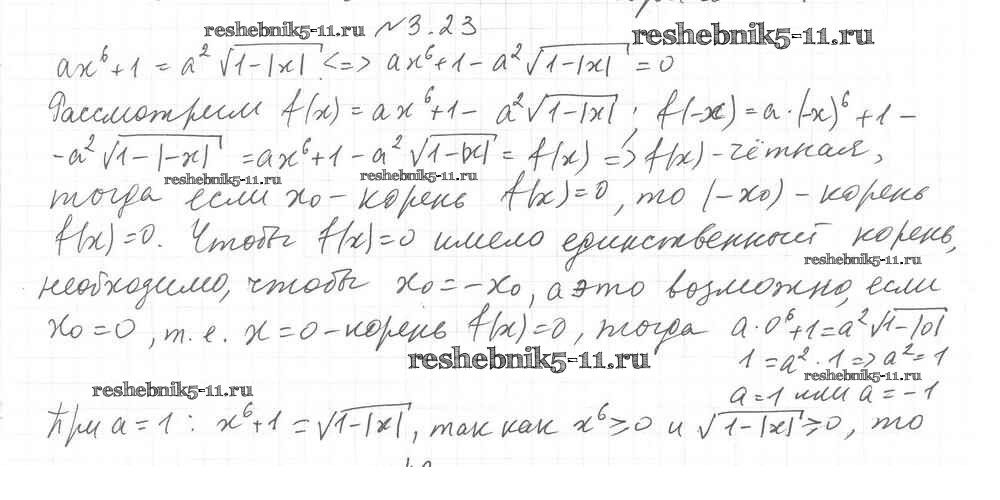 reshebnik5-11.ru №3.23 reshebnik5-11.ru
ax⁶+1 = a²√1-|x| <=> ax⁶+1 - a²√1-|x| = 0
Рассмотрим f(x) = ax⁶+1 - a²√1-|x| ; f(-x) = a·(-x)⁶+1 -
-a²√1-|-x| = ax⁶+1 - a²√1-|x| = f(x) => f(x) - чётная,
reshebnik5-11.ru reshebnik5-11.ru
тогда если x₀ - корень f(x)=0, то (-x₀) - корень
f(x)=0. Чтобы f(x)=0 имело единственный корень,
reshebnik5-11.ru
необходимо, чтобы x₀ = -x₀, а это возможно, если
x₀=0, т.е. x=0 - корень f(x)=0, тогда a·0⁶+1=a²√1-|0|
reshebnik5-11.ru 1=a²·1 => a²=1
reshebnik5-11.ru reshebnik5-11.ru
a=1 или a=-1
При a=1 : x⁶+1 = √1-|x|, так как x⁶≥0 и √1-|x| ≥0, то